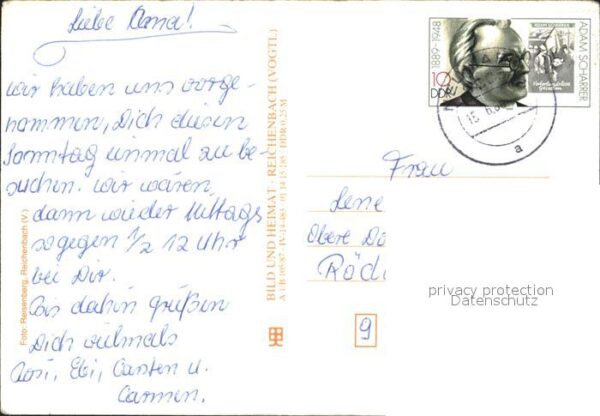 Liebe Oma!
wir haben uns vorge-
nommen, Dich diesen
Sonntag einmal zu be-
suchen. wir wären
dann wieder Mittags
so gegen 1/2 12 Uhr
bei Dir.
Bis dahin grüßen
Dich vielmals
Rosi, Ebi, Carsten u.
Carmen.
Foto: Reisenberg, Reichenbach (V.)
BILD UND HEIMAT · REICHENBACH (VOGTL)
A 1/B 105/87 · IV-14-483 · 01 14 15 285 · DDR 0,25 M
ADAM SCHARRER
1889–1948
10
DDR
ADAM SCHARRER
Vaterlandslose
Gesellen
a
Frau
Lene
Obere Do
Röd
9
privacy protection
Datenschutz